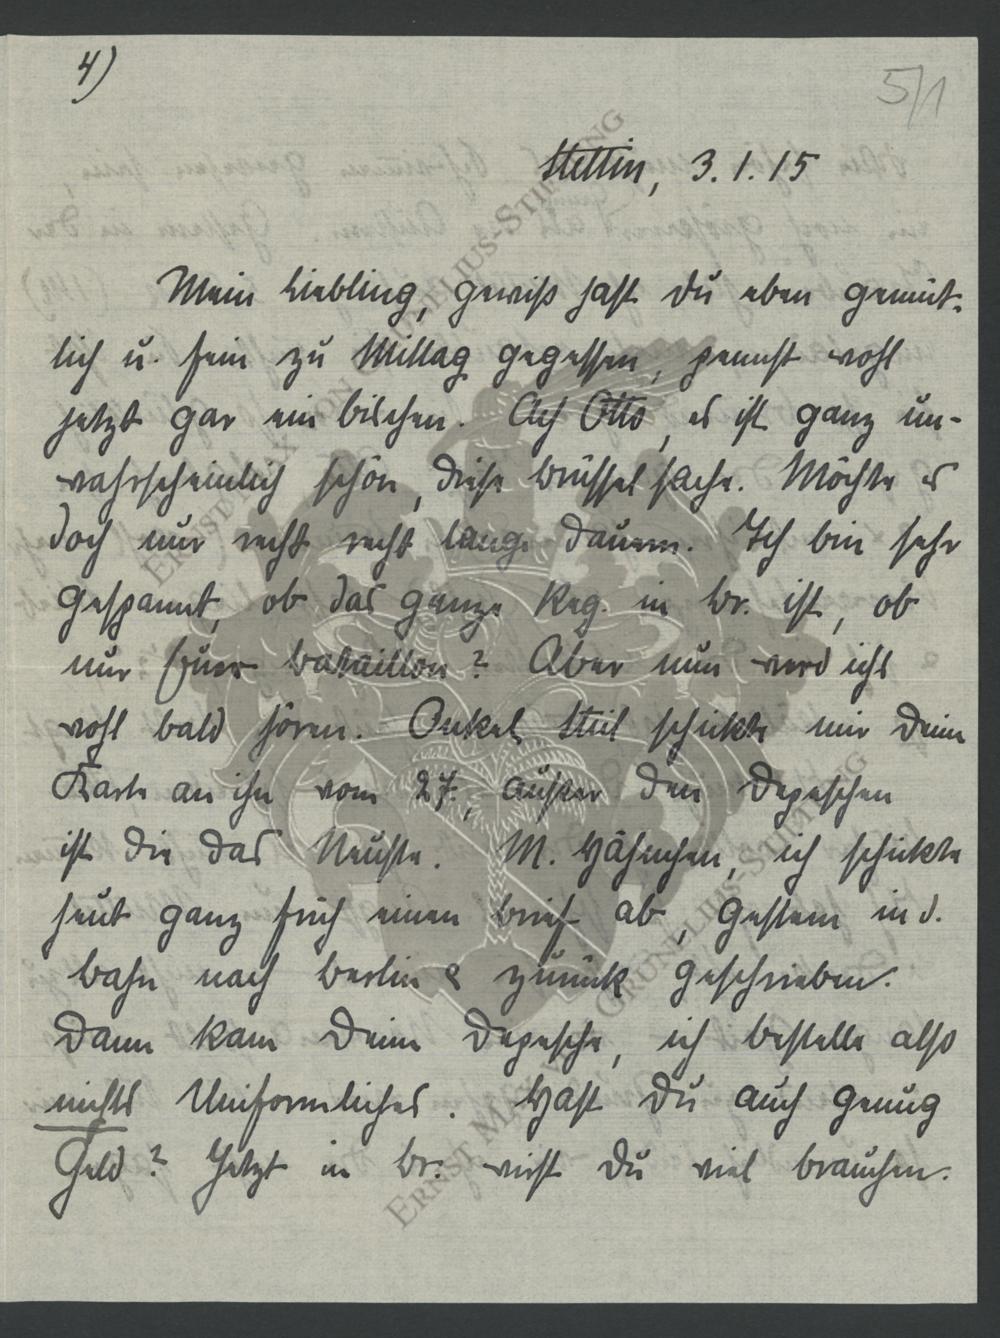 4)
5/1
Stettin, 3.1.15
Mein Liebling, gewiß hast Du eben gemüt-
lich u. fein zu Mittag gegessen, pennst wohl
jetzt gar ein bischen. Ach Otto, es ist ganz un-
wahrscheinlich schön, diese Brüssel sache. Möchte es
doch nur recht recht lange dauern. Ich bin sehr
gespannt, ob das ganze Reg. in Br. ist, ob
nur Euer Bataillon? Aber nun werd ichs
wohl bald hören. Onkel Stiel schickte mir Deine
Karte an ihn vom 27., außer den Depeschen
ist die das Neuste. M. Hähnchen, ich schickte
heut ganz früh einen Brief ab, gestern in d.
Bahn nach Berlin & zurück geschrieben.
Dann kam Deine Depesche, ich bestelle also
nichts Uniformliches. Hast Du auch genug
Geld? Jetzt in Br. wirst Du viel brauchen.
ERNST MAX VON GRUNELIUS-STIFTUNG
ERNST MAX VON GRUNELIUS-STIFTUNG